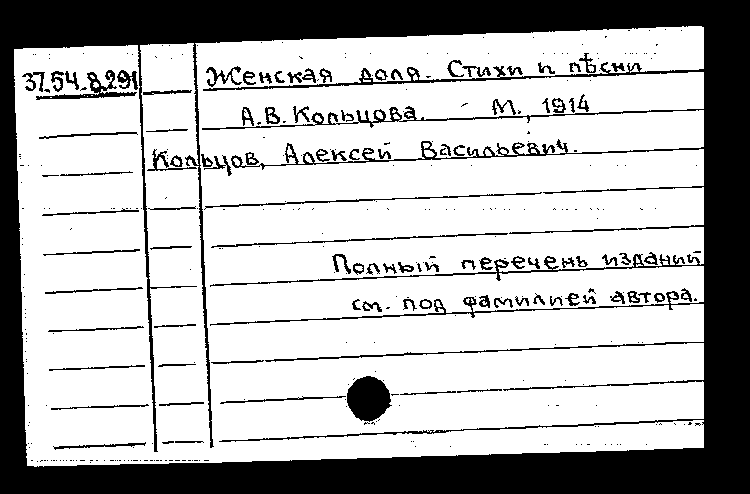 37.54.8.291 Женская доля. Стихи и пѣсни
А.В. Кольцова. М., 1914
Кольцов, Алексей Васильевич.
Полный перечень изданий
см. под фамилией автора.